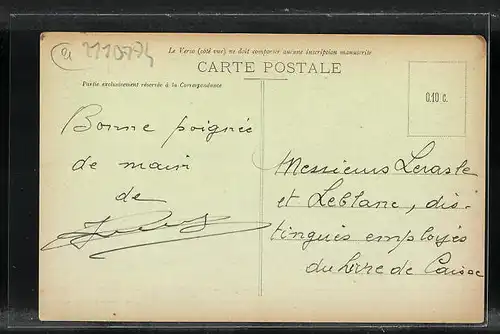 2110794
Le Verso (côté vue) ne doit comporter aucune inscription manuscrite
CARTE POSTALE
Partie exclusivement réservée à la Correspondance
0.10 c.
Bonne poignée
de main
de
Messieurs Leraste
et Leblanc, dis-
tingués employés
du livre de Caisse